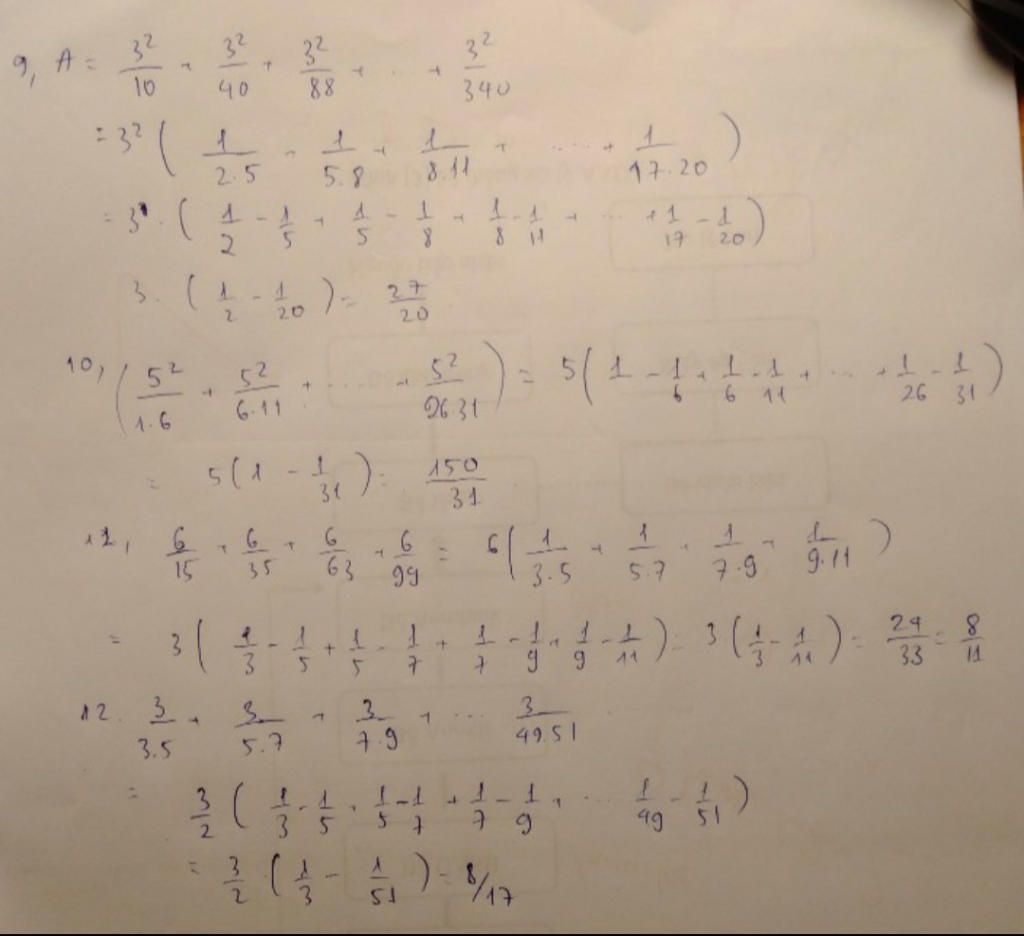 9, A = 3²/10 + 3²/40 + 3²/88 + ... + 3²/340
= 3² ( 1/2.5 + 1/5.8 + 1/8.11 + ... + 1/17.20 )
= 3 . ( 1/2 - 1/5 + 1/5 - 1/8 + 1/8 - 1/11 + ... + 1/17 - 1/20 )
3. ( 1/2 - 1/20 ) = 27/20
10, ( 5²/1.6 + 5²/6.11 + ... + 5²/26.31 ) = 5 ( 1 - 1/6 + 1/6 - 1/11 + ... + 1/26 - 1/31 )
= 5 ( 1 - 1/31 ) = 150/31
11, 6/15 + 6/35 + 6/63 + 6/99 = 6 ( 1/3.5 + 1/5.7 + 1/7.9 + 1/9.11 )
= 3 ( 1/3 - 1/5 + 1/5 - 1/7 + 1/7 - 1/9 + 1/9 - 1/11 ) = 3 ( 1/3 - 1/11 ) = 24/33 = 8/11
12. 3/3.5 + 3/5.7 + 3/7.9 + ... 3/49.51
= 3/2 ( 1/3 - 1/5 + 1/5 - 1/7 + 1/7 - 1/9 + ... 1/49 - 1/51 )
= 3/2 . ( 1/3 - 1/51 ) = 8/17